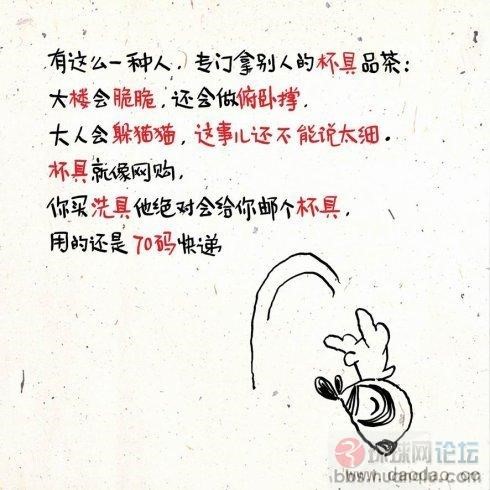 有这么一种人，专门拿别人的杯具品茶：
大楼会脆脆，还会做俯卧撑，
大人会躲猫猫，这事儿还不能说太细。
杯具就像网购，
你买洗具他绝对会给你邮个杯具，
用的还是70码快递
环球网论坛
www.daodao.cc
bbs.huanqiu.com